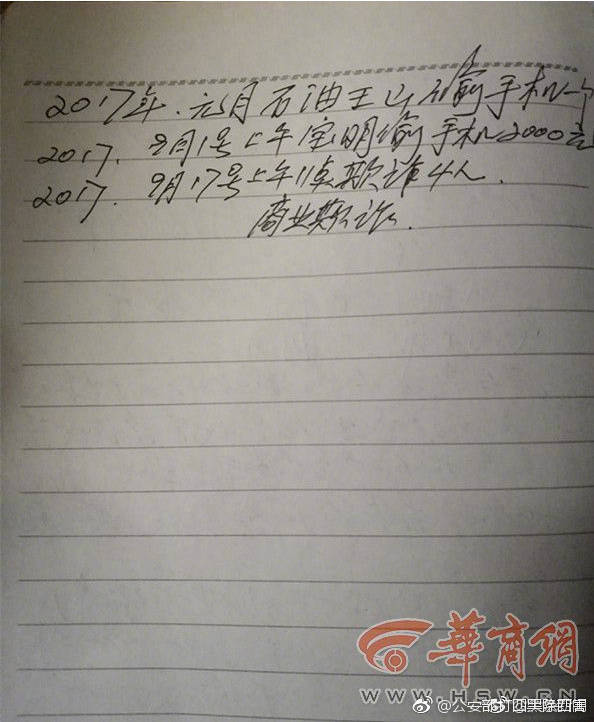 2017年.元月石油王山偷手机一个
2017. 9月1号上午宝明偷手机2000元
2017. 9月17号上午11点欺诈4人.
商业欺诈.
華商網
WWW.HSW.CN
@公安部打四黑除四害